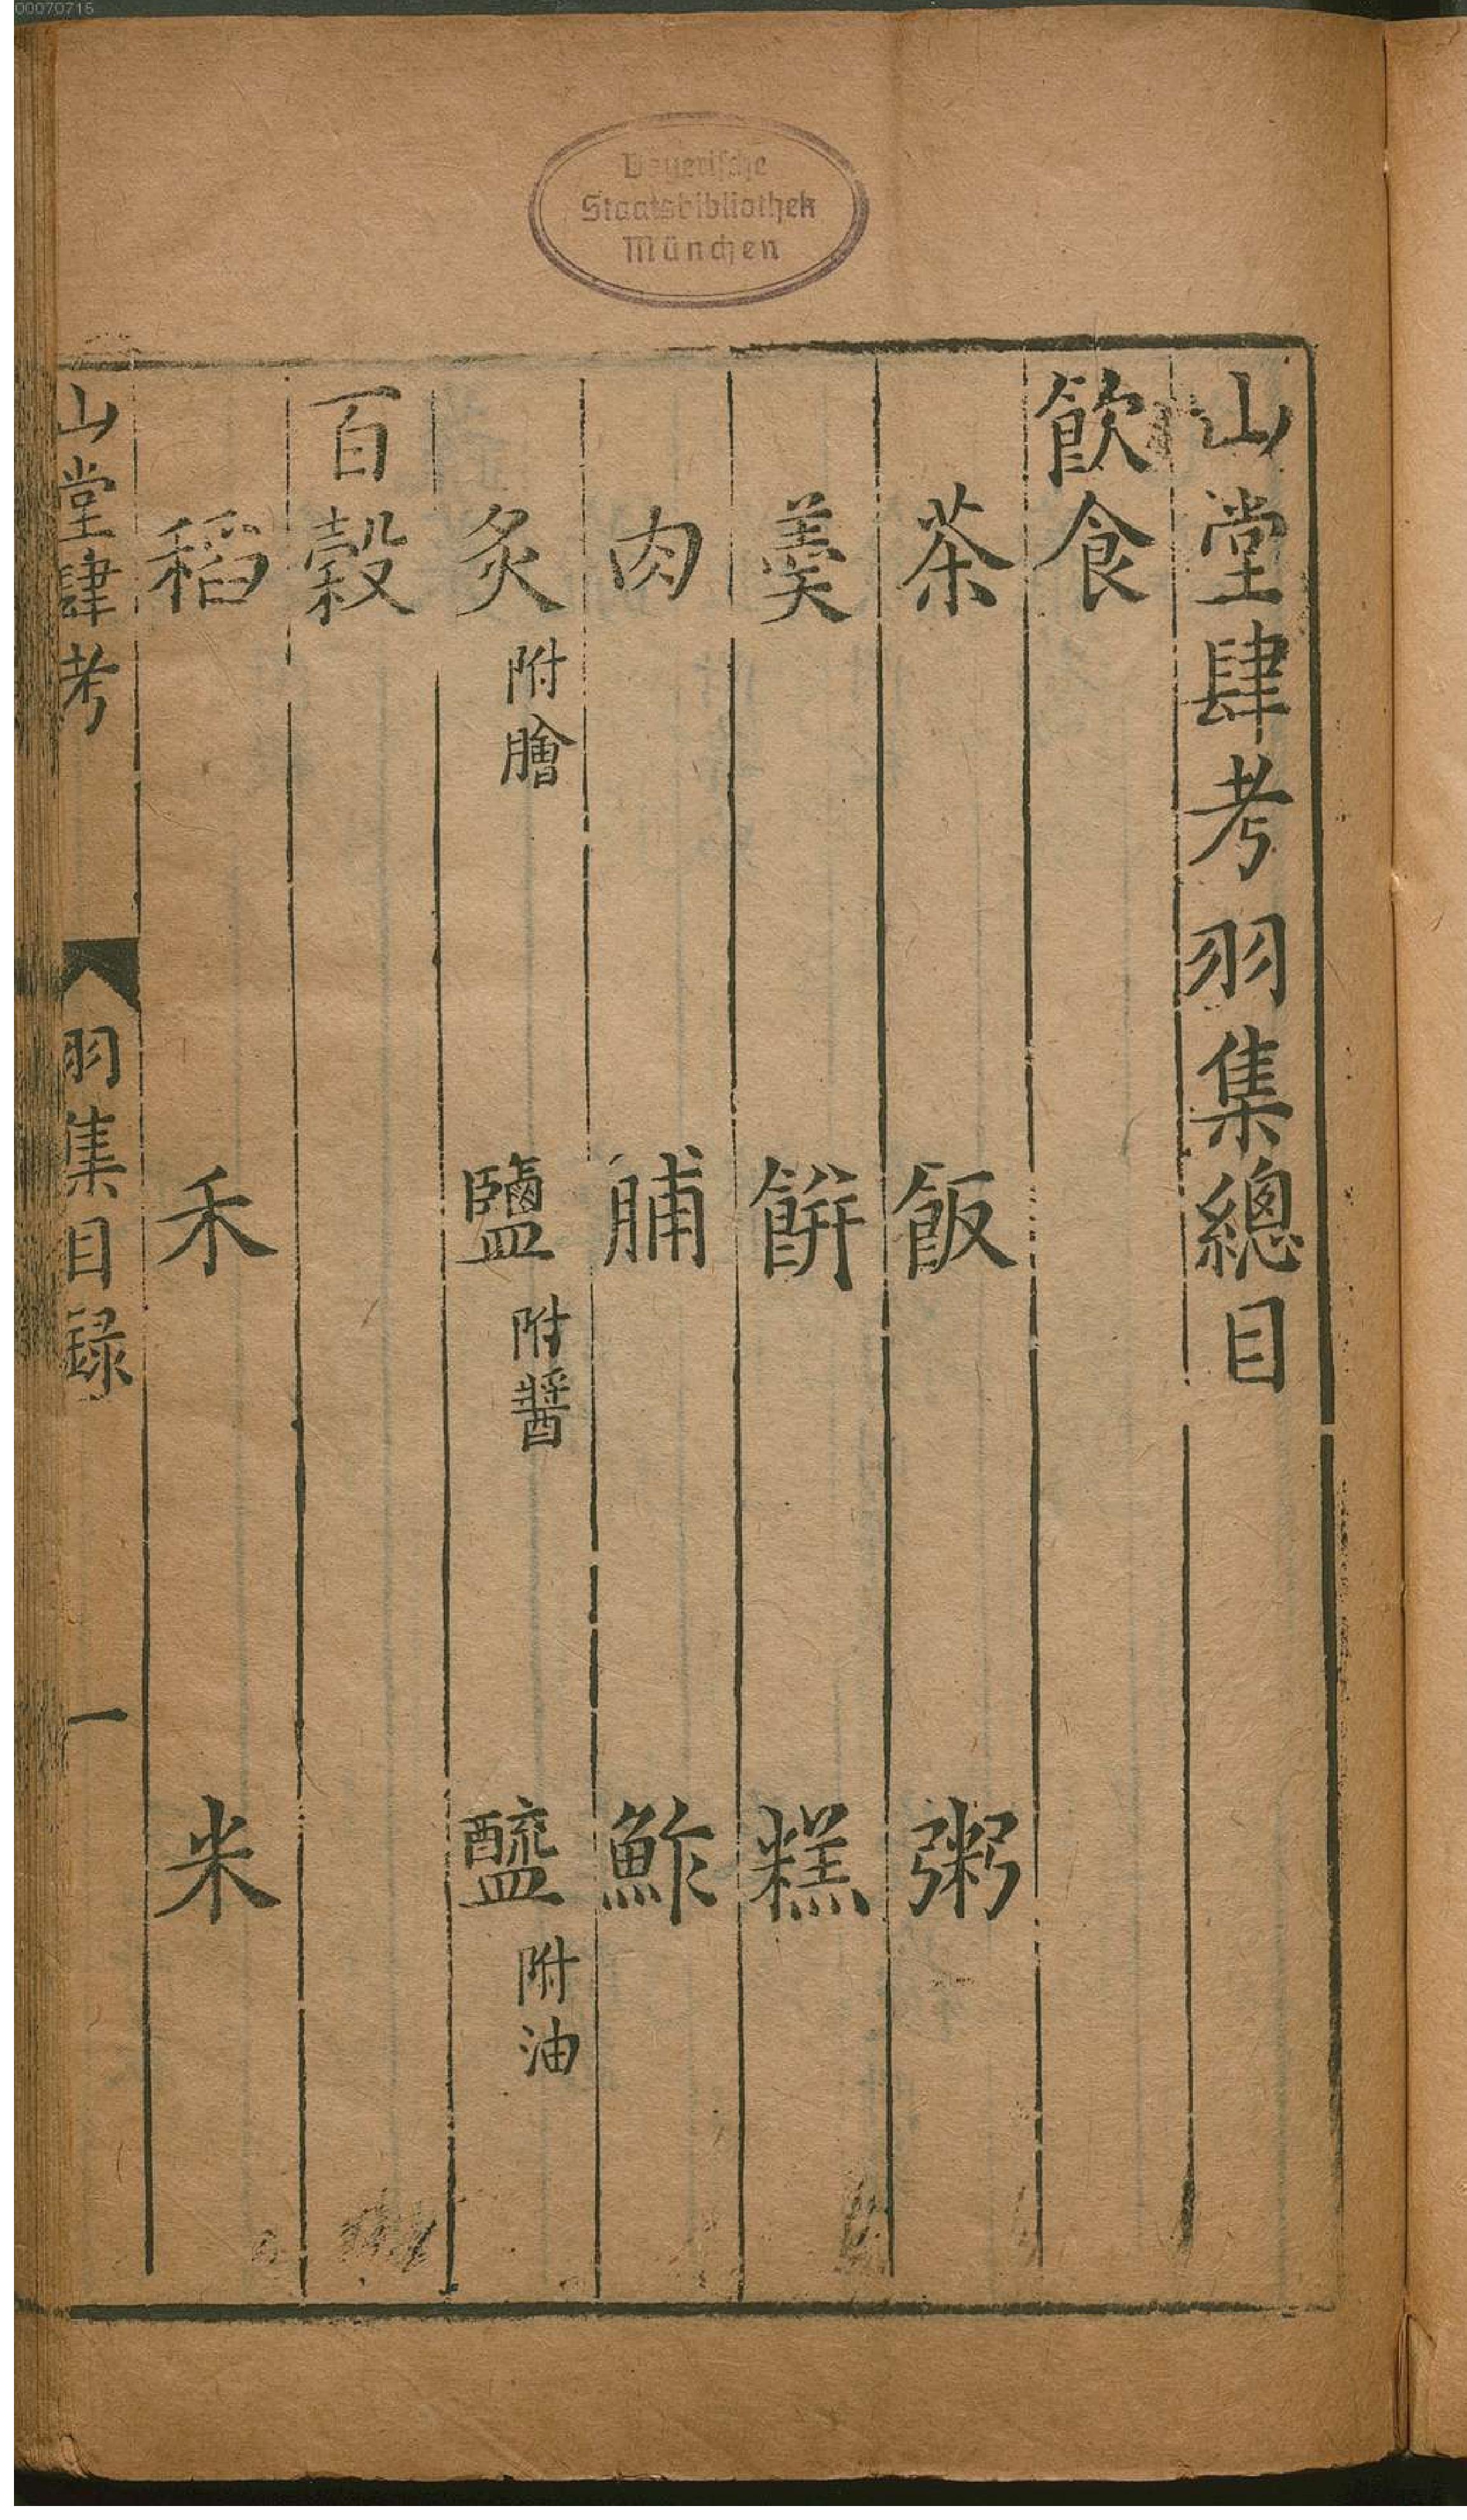 00070715
Bayerische
Staatsbibliothek
München
山堂肆考羽集總目
飲食
茶 飯 粥
羹 餅 糕
肉 脯 鮓
炙附膾 鹽附醬 醯附油
百穀
稻 禾 米
山堂肆考 羽集目録 一